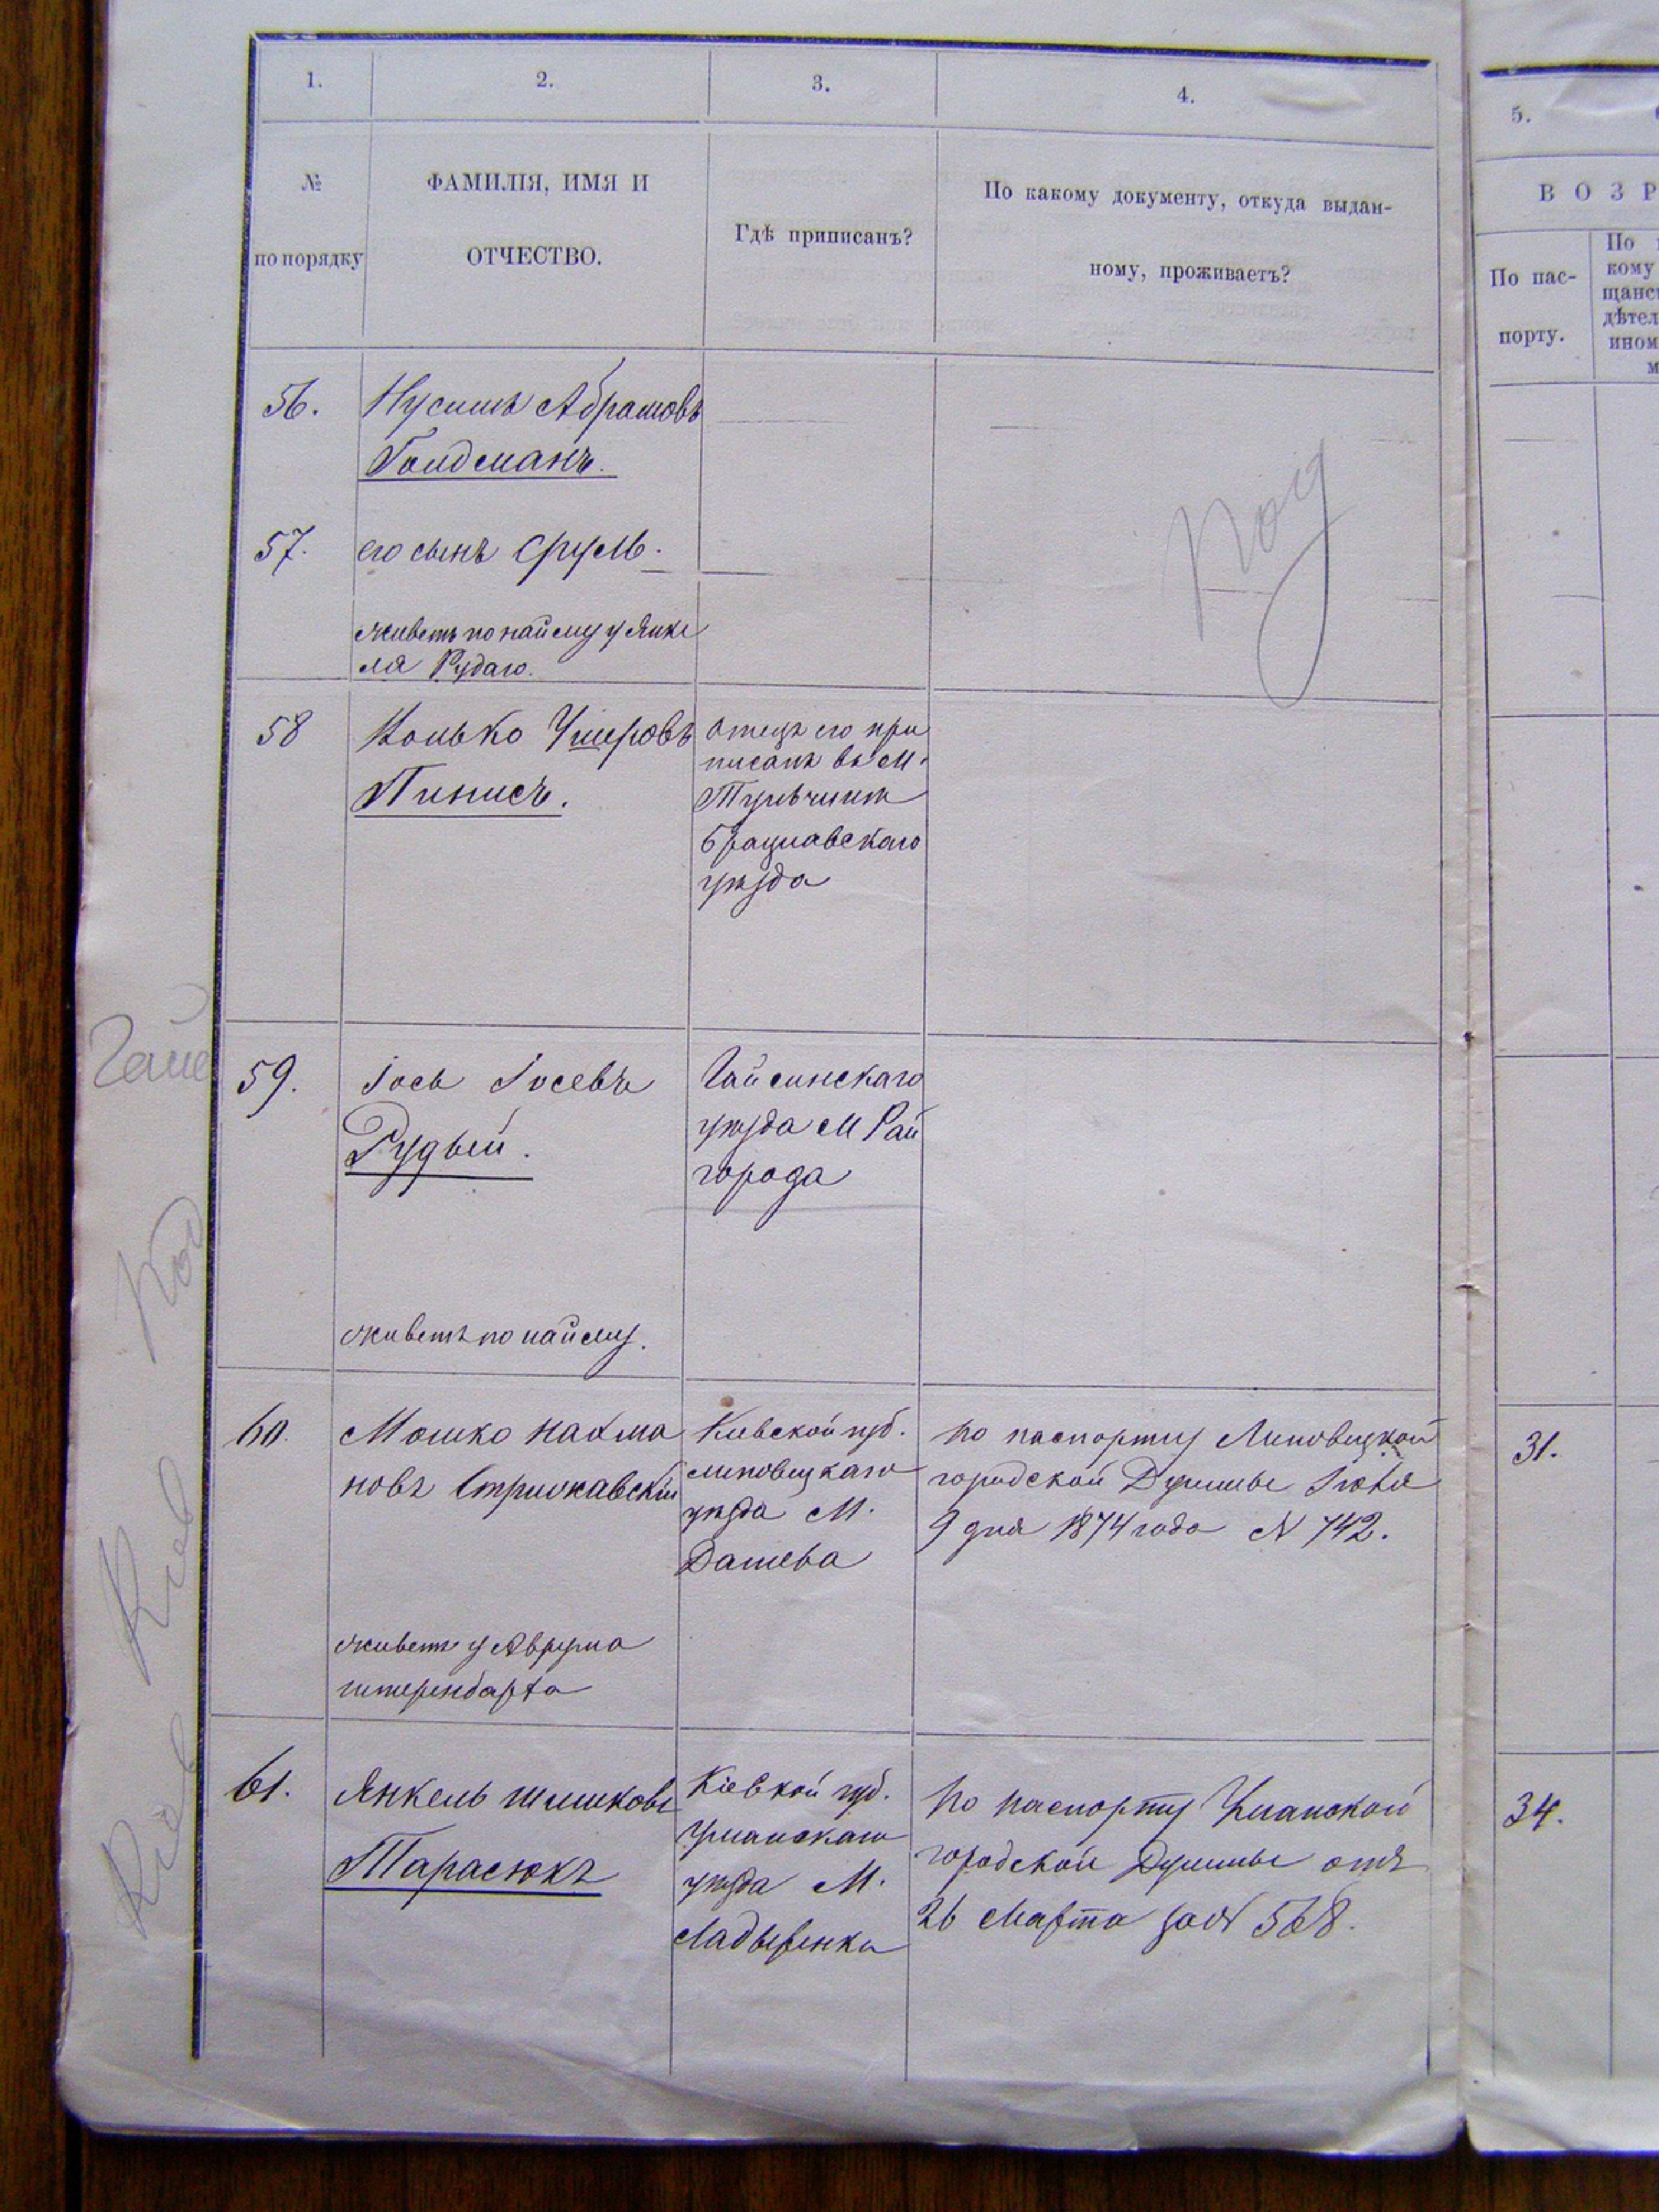 1.
2.
3.
4.
5.
№
по порядку
ФАМИЛІЯ, ИМЯ И
ОТЧЕСТВО.
Гдѣ приписанъ?
По какому документу, откуда выдан-
ному, проживаетъ?
В О З Р
По пас-
порту.
По
кому
щанс
дѣтел
ином
м
56.
Нусимъ Абрамовъ
Голдманъ.
57.
его сынъ Сруль.
живетъ по найму у Янке
ля Рудаго.
58
Ушеровъ
Пинисъ.
Отецъ его при
писанъ въ м.
Тульчинѣ
Брацлавскаго
уѣзда
Под
59.
Іось Іосевъ
Рудый.
живетъ по найму.
Гайсинскаго
уѣзда М Рай
города
60.
Мошко Нахма
новъ Стрижавскій
живетъ у Аврума
Кіевской губ.
Липовецкаго
уѣзда М.
Дашева
По паспорту Липовецкой
городской Думы Іюня
9 дня 1874 года N 742.
31.
61.
Янкель Шлиомковъ
Тарасюкъ
Кіевкой губ.
Уманскаго
уѣзда М.
Ладыженки
По паспорту Уманской
городской Думы отъ
26 Марта за N 568.
34.
Гайс
Под
Кіев
Кіев